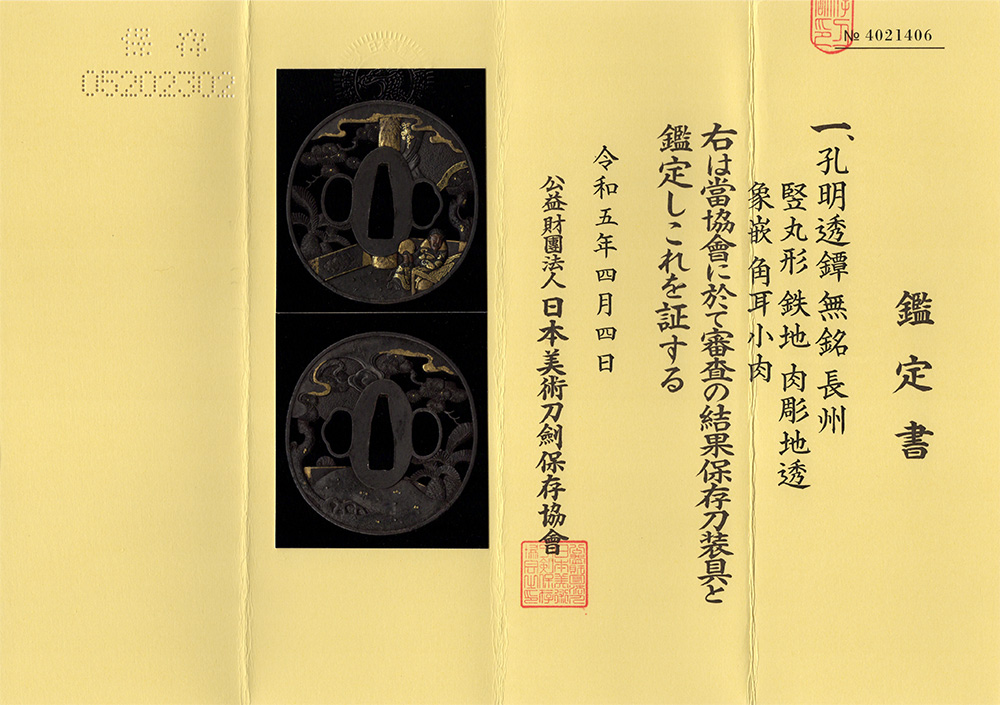 № 4021406
鑑定書
一、孔明透鐔 無銘 長州
竪丸形 鉄地 肉彫地透
象嵌 角耳小肉
右は當協會に於て審査の結果保存刀装具と
鑑定しこれを証する
令和五年四月四日
公益財團法人 日本美術刀劍保存協會
保存
05202302